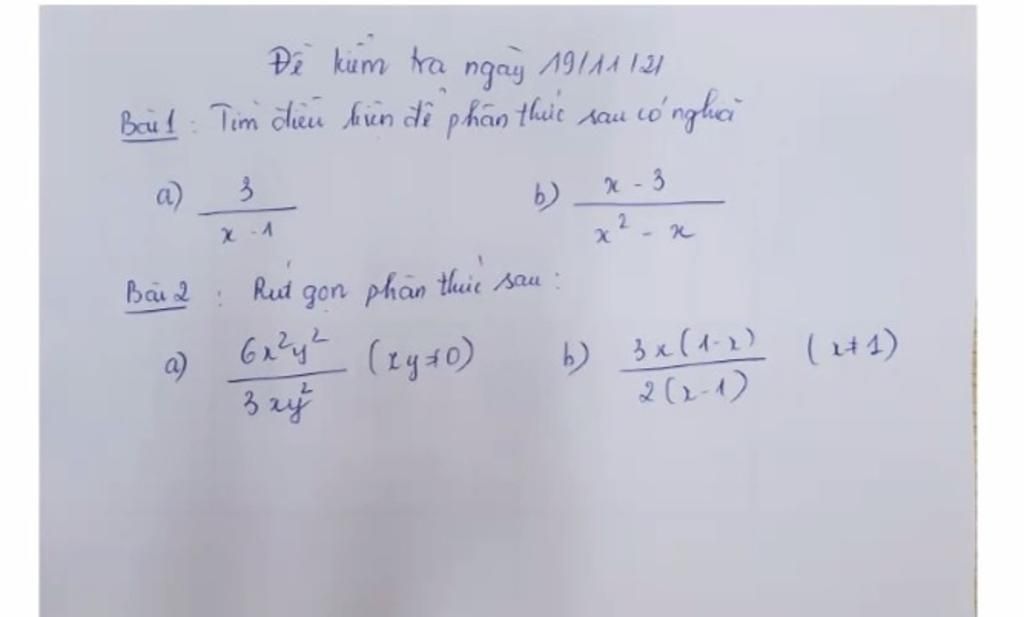 Đề kiểm tra ngày 19/11/21
Bài 1 : Tìm điều kiện để phân thức sau có nghĩa
a) 3/(x - 1) b) (x - 3)/(x² - x)
Bài 2 : Rút gọn phân thức sau :
a) 6x²y²/3xy² (xy≠0) b) 3x(1-x)/2(x-1) (x≠1)